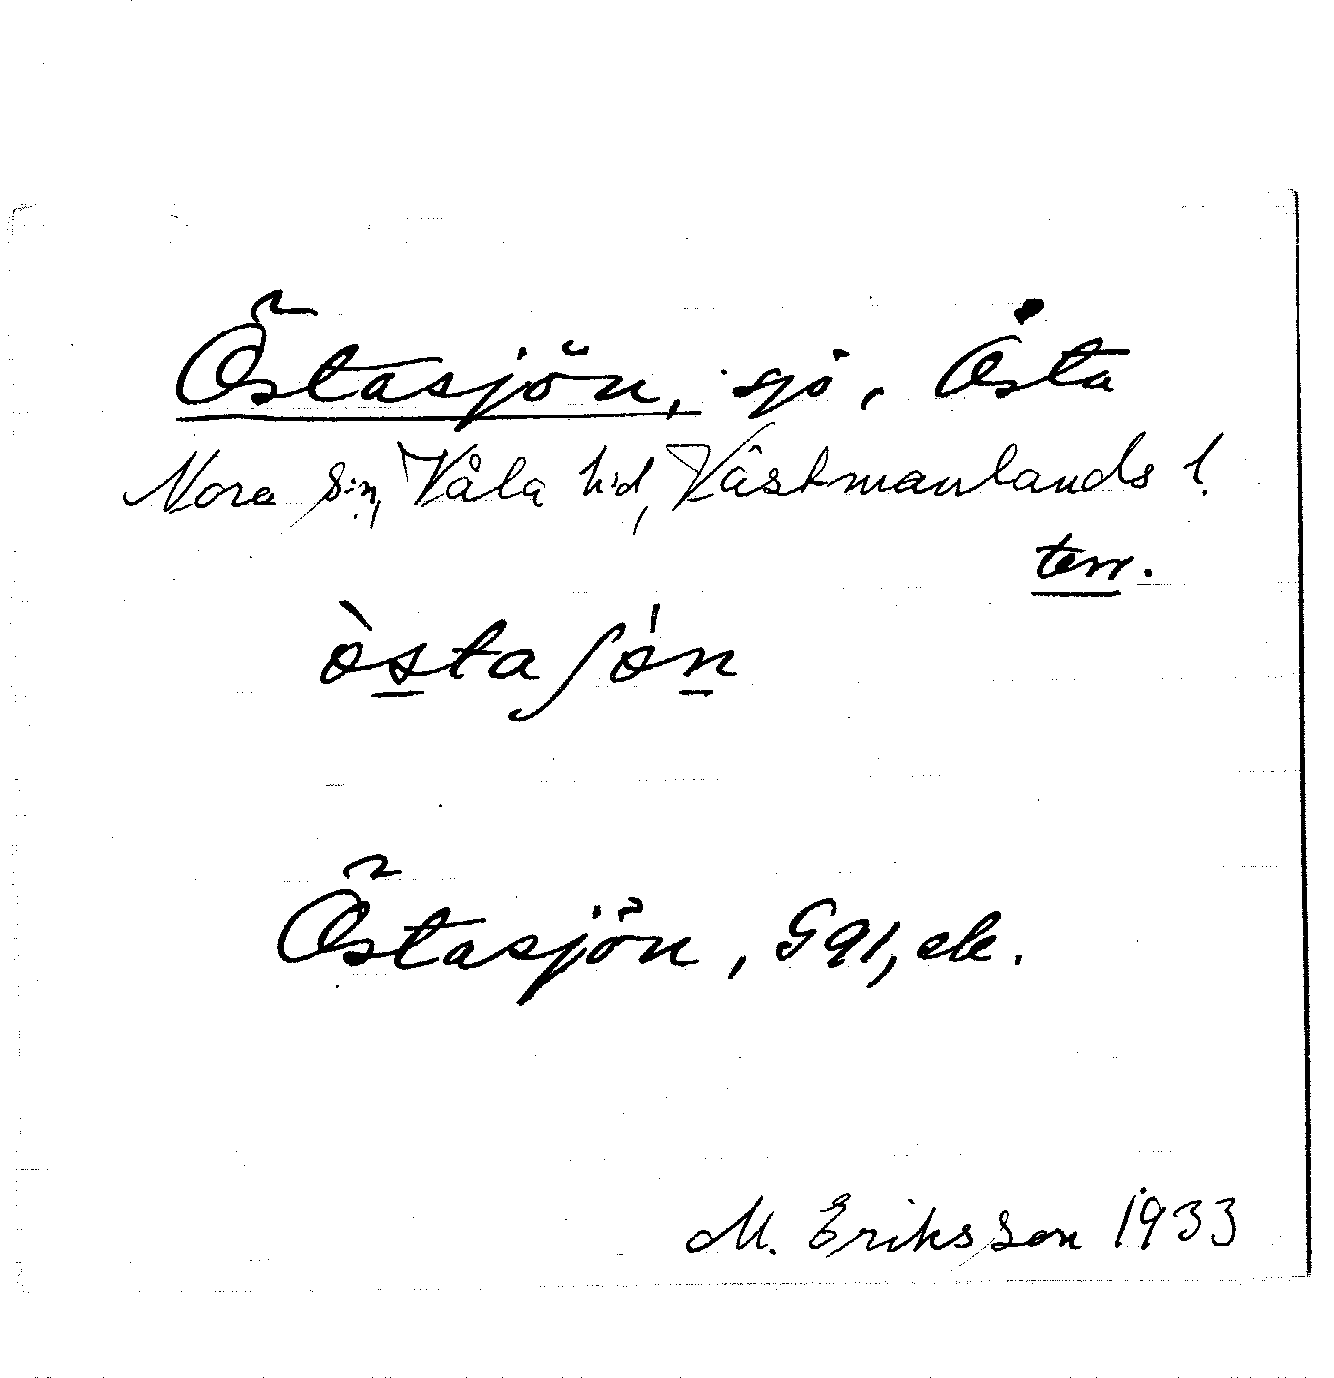 Östasjön, sjö, Östa
Nora s:n, Våla hd, Västmanlands l.
terr.
òstaʃón
Östasjön, G91, ek.
M. Eriksson 1933